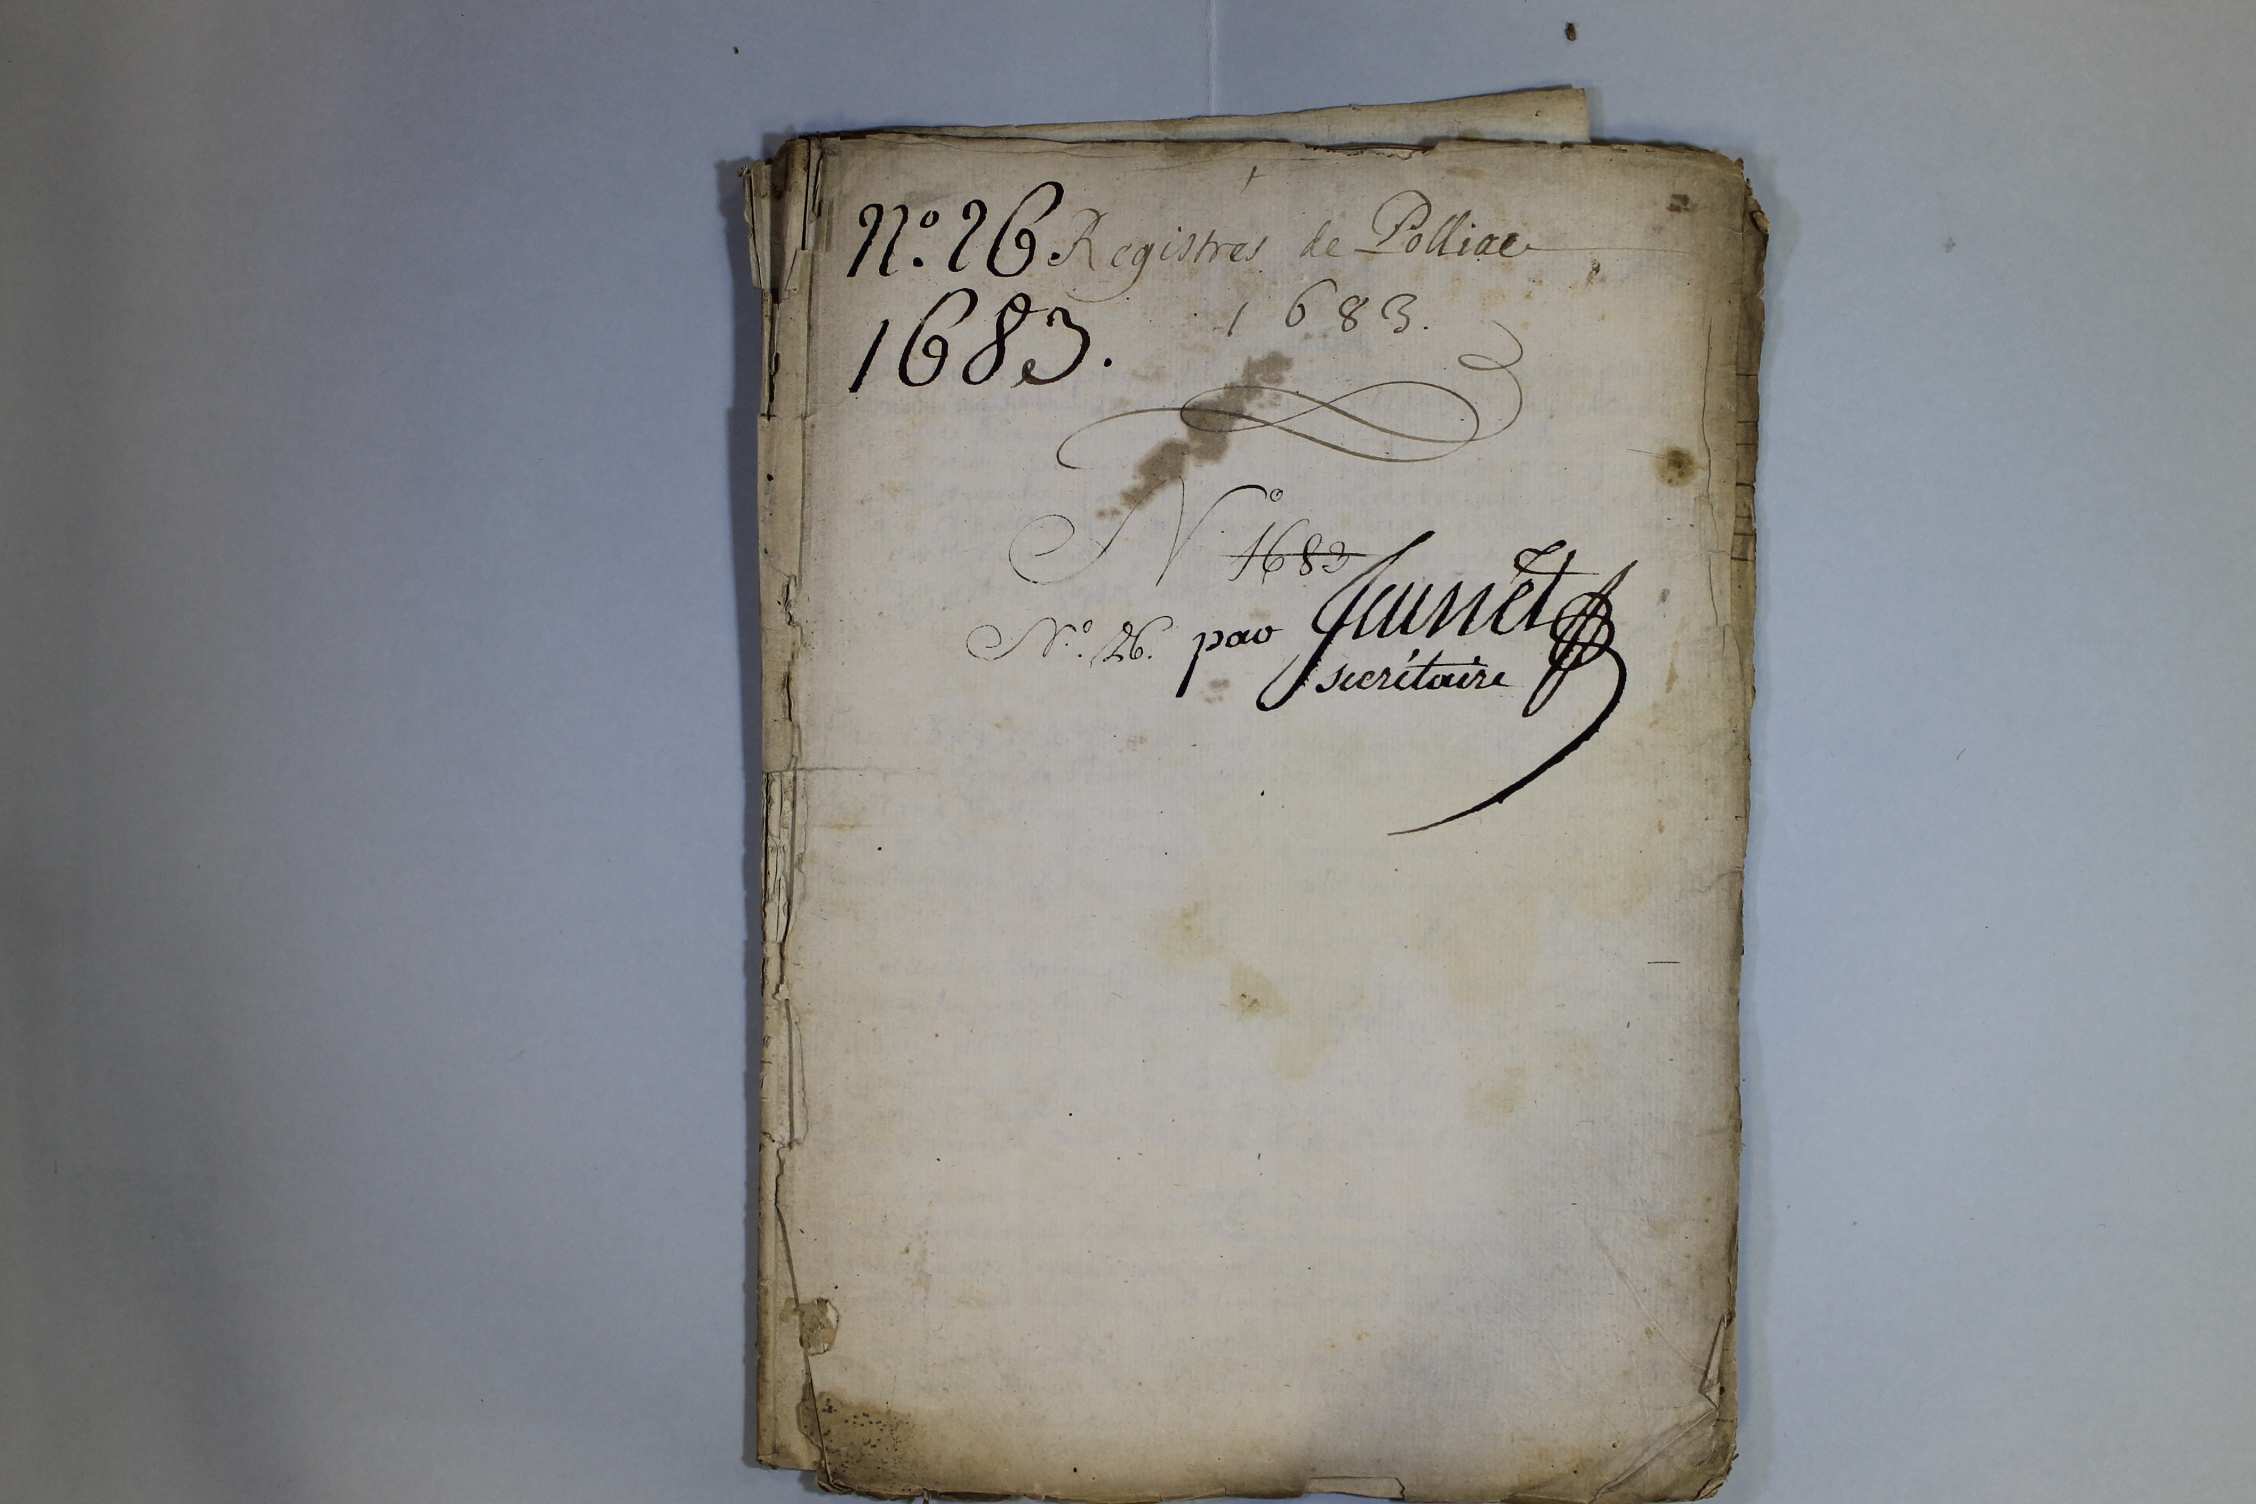 N.º 26 Registres de Polliac
1683.
1683.
N.º 1683
N.º 26. par Junet
secrétaire